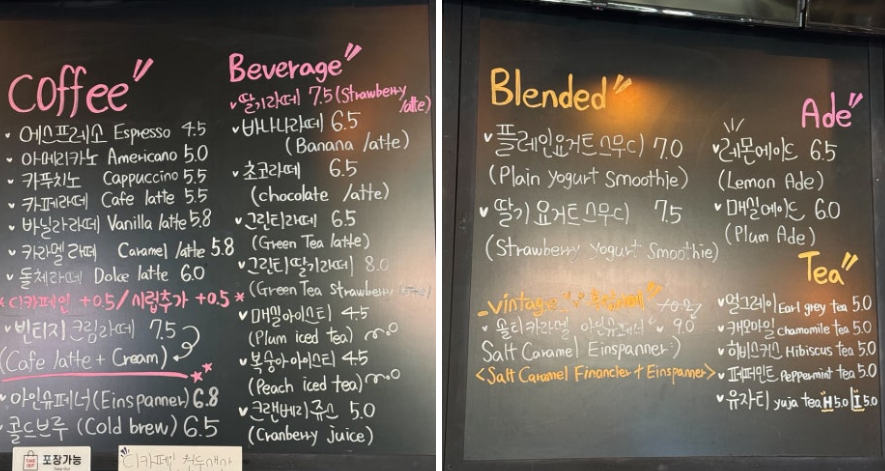 Coffee"
에스프레소 Espresso 4.5
아메리카노 Americano 5.0
카푸치노 Cappuccino 5.5
카페라떼 Cafe latte 5.5
바닐라라떼 Vanilla latte 5.8
카라멜라떼 Caramel latte 5.8
돌체라떼 Dolce latte 6.0
* 디카페인 +0.5/시럽추가 +0.5 *
빈티지 크림라떼 7.5
(Cafe latte + Cream)
아인슈페너(Einspanner) 6.8
콜드브루 (Cold brew) 6.5
포장가능
디카페인
Beverage"
딸기라떼 7.5 (Strawberry latte)
바나나라떼 6.5
(Banana latte)
초코라떼 6.5
(chocolate latte)
그린티라떼 6.5
(Green Tea latte)
그린티딸기라떼 8.0
(Green Tea Strawberry latte)
매실아이스티 4.5
(Plum iced tea)
복숭아아이스티 4.5
(Peach iced tea)
크랜베리쥬스 5.0
(Cranberry juice)
Blended"
플레인요거트스무디 7.0
(Plain Yogurt Smoothie)
딸기요거트스무디 7.5
(Strawberry Yogurt Smoothie)
vintage
솔티카라멜 아인슈페너 9.0
Salt Caramel Einspanner)
<Salt Caramel Financier + Einspanner>
Ade"
레몬에이드 6.5
(Lemon Ade)
매실에이드 6.0
(Plum Ade)
Tea"
얼그레이 Earl grey tea 5.0
캐모마일 chamomile tea 5.0
히비스커스 Hibiscus tea 5.0
페퍼민트 Peppermint tea 5.0
유자티 yuja tea H 5.0 I 5.0